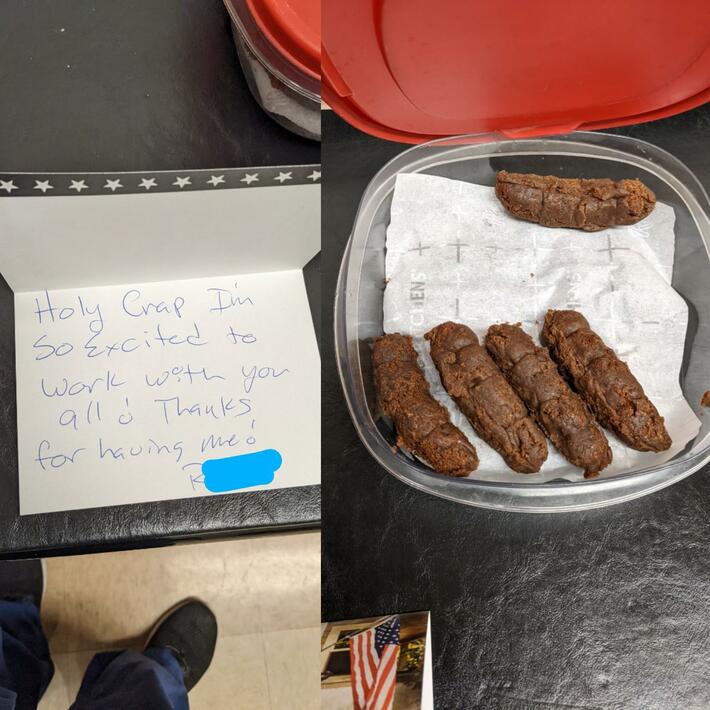 Holy Crap I'm
So Excited to
work with you
all! Thanks
for having me!
R
KITCHENS